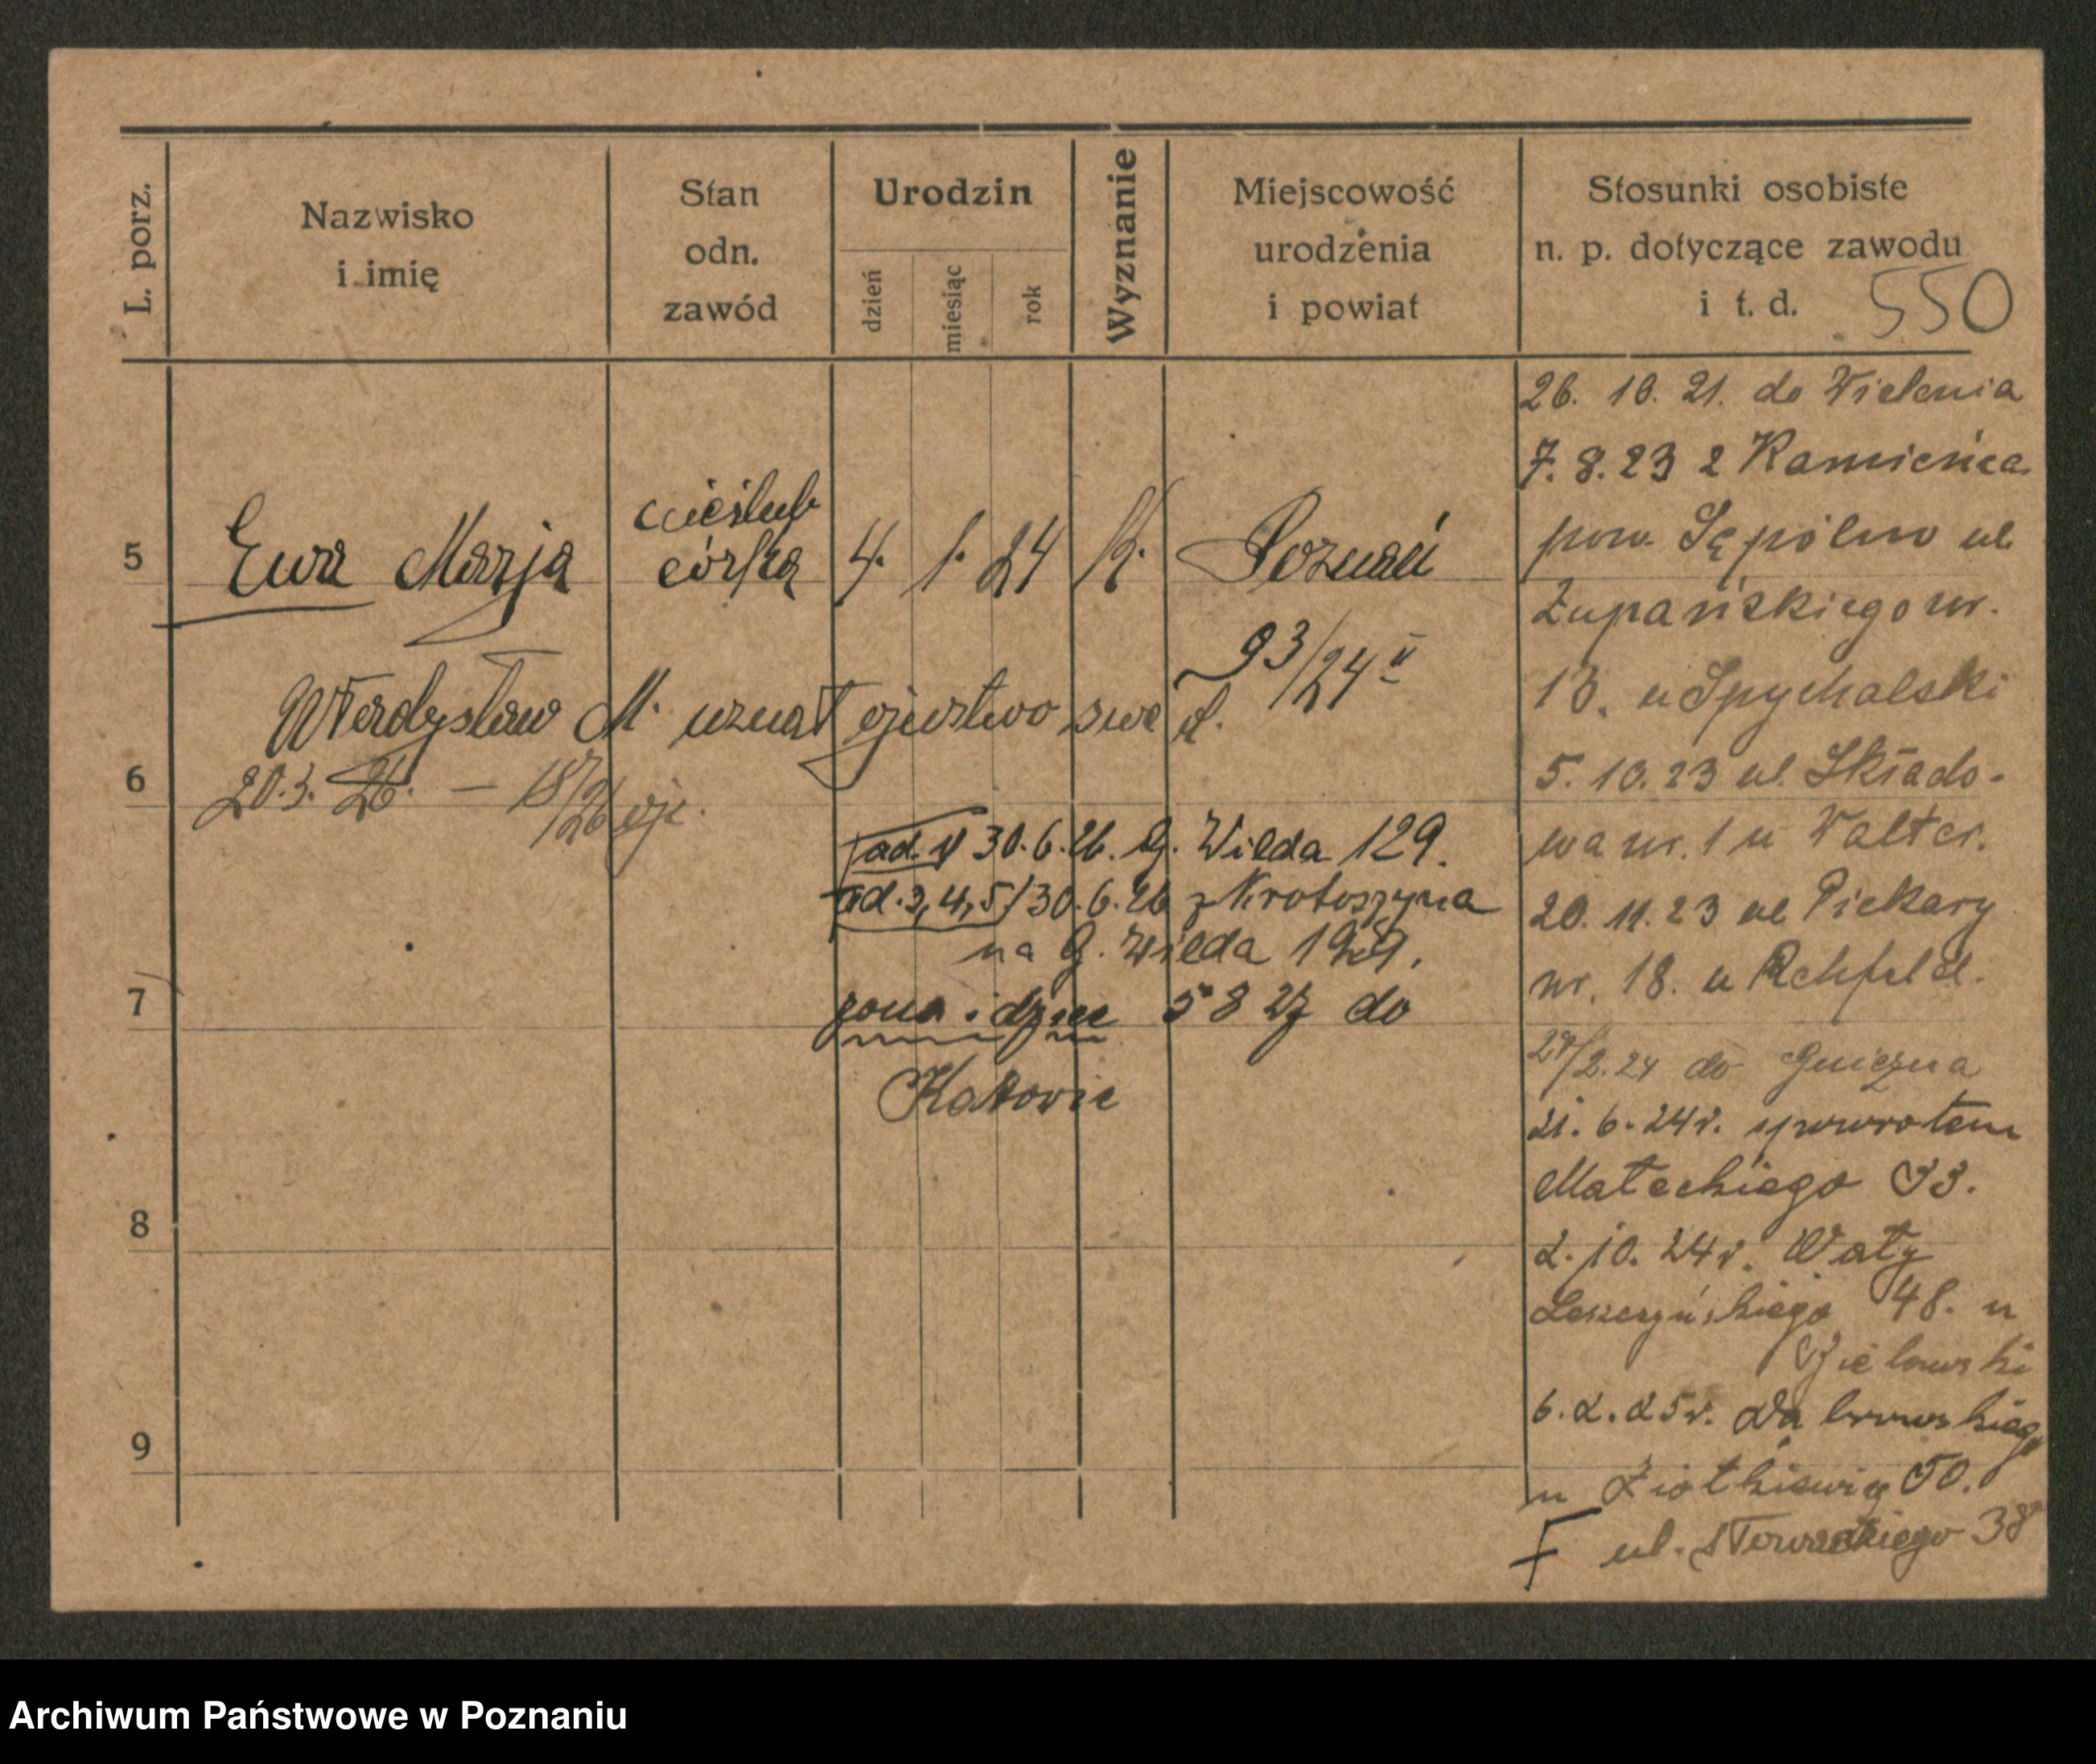 L. porz.
Nazwisko
i imię
Stan
odn.
zawód
Urodzin
dzień
miesiąc
rok
Wyznanie
Miejscowość
urodzenia
i powiat
Stosunki osobiste
n. p. dotyczące zawodu
i t. d.
550
5
Ewa Marja
nieślub
córka
4. 1. 24
k.
Poznań
93/24 II
Władysław M. uznał ojcostwo swe
6
20.3. 26. — 18/26 ojc.
ad. 1/ 30.6.26. G. Wilda 129.
ad. 3, 4, 5/ 30.6.26 z Krotoszyna
na G. Wilda 129.
7
żona i dzieci 5 8 27 do
Katowic
8
9
26. 10. 21. do Wielenia
7. 8. 23 z Kamieńca
pow. Sępólno ul.
Żupańskiego nr.
13. u Spychalski
5. 10. 23 ul. Składo-
wa nr. 1 u Walter.
20. 11. 23 ul Piekary
nr. 18. u Rehfeld.
27/2.24 do Gniezna
21. 6. 24 r. spowrotem
Małeckiego 33.
2. 10. 24 r. Wały
Leszczyńskiego 48. u
6. 2. 25 r. Dąbrowskiego
u Ziółkiewicz 50.
ul. Słowackiego 38
Archiwum Państwowe w Poznaniu